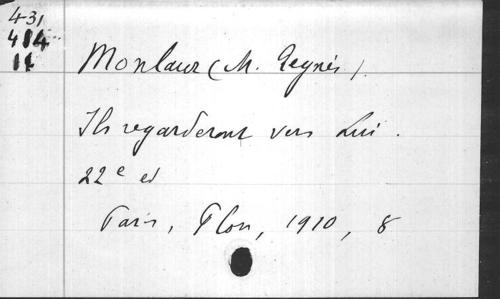 431
414
11
Monlaur (M. Reynès).
Ils regarderont vers Lui.
22e ed
Paris, Plon, 1910, 8